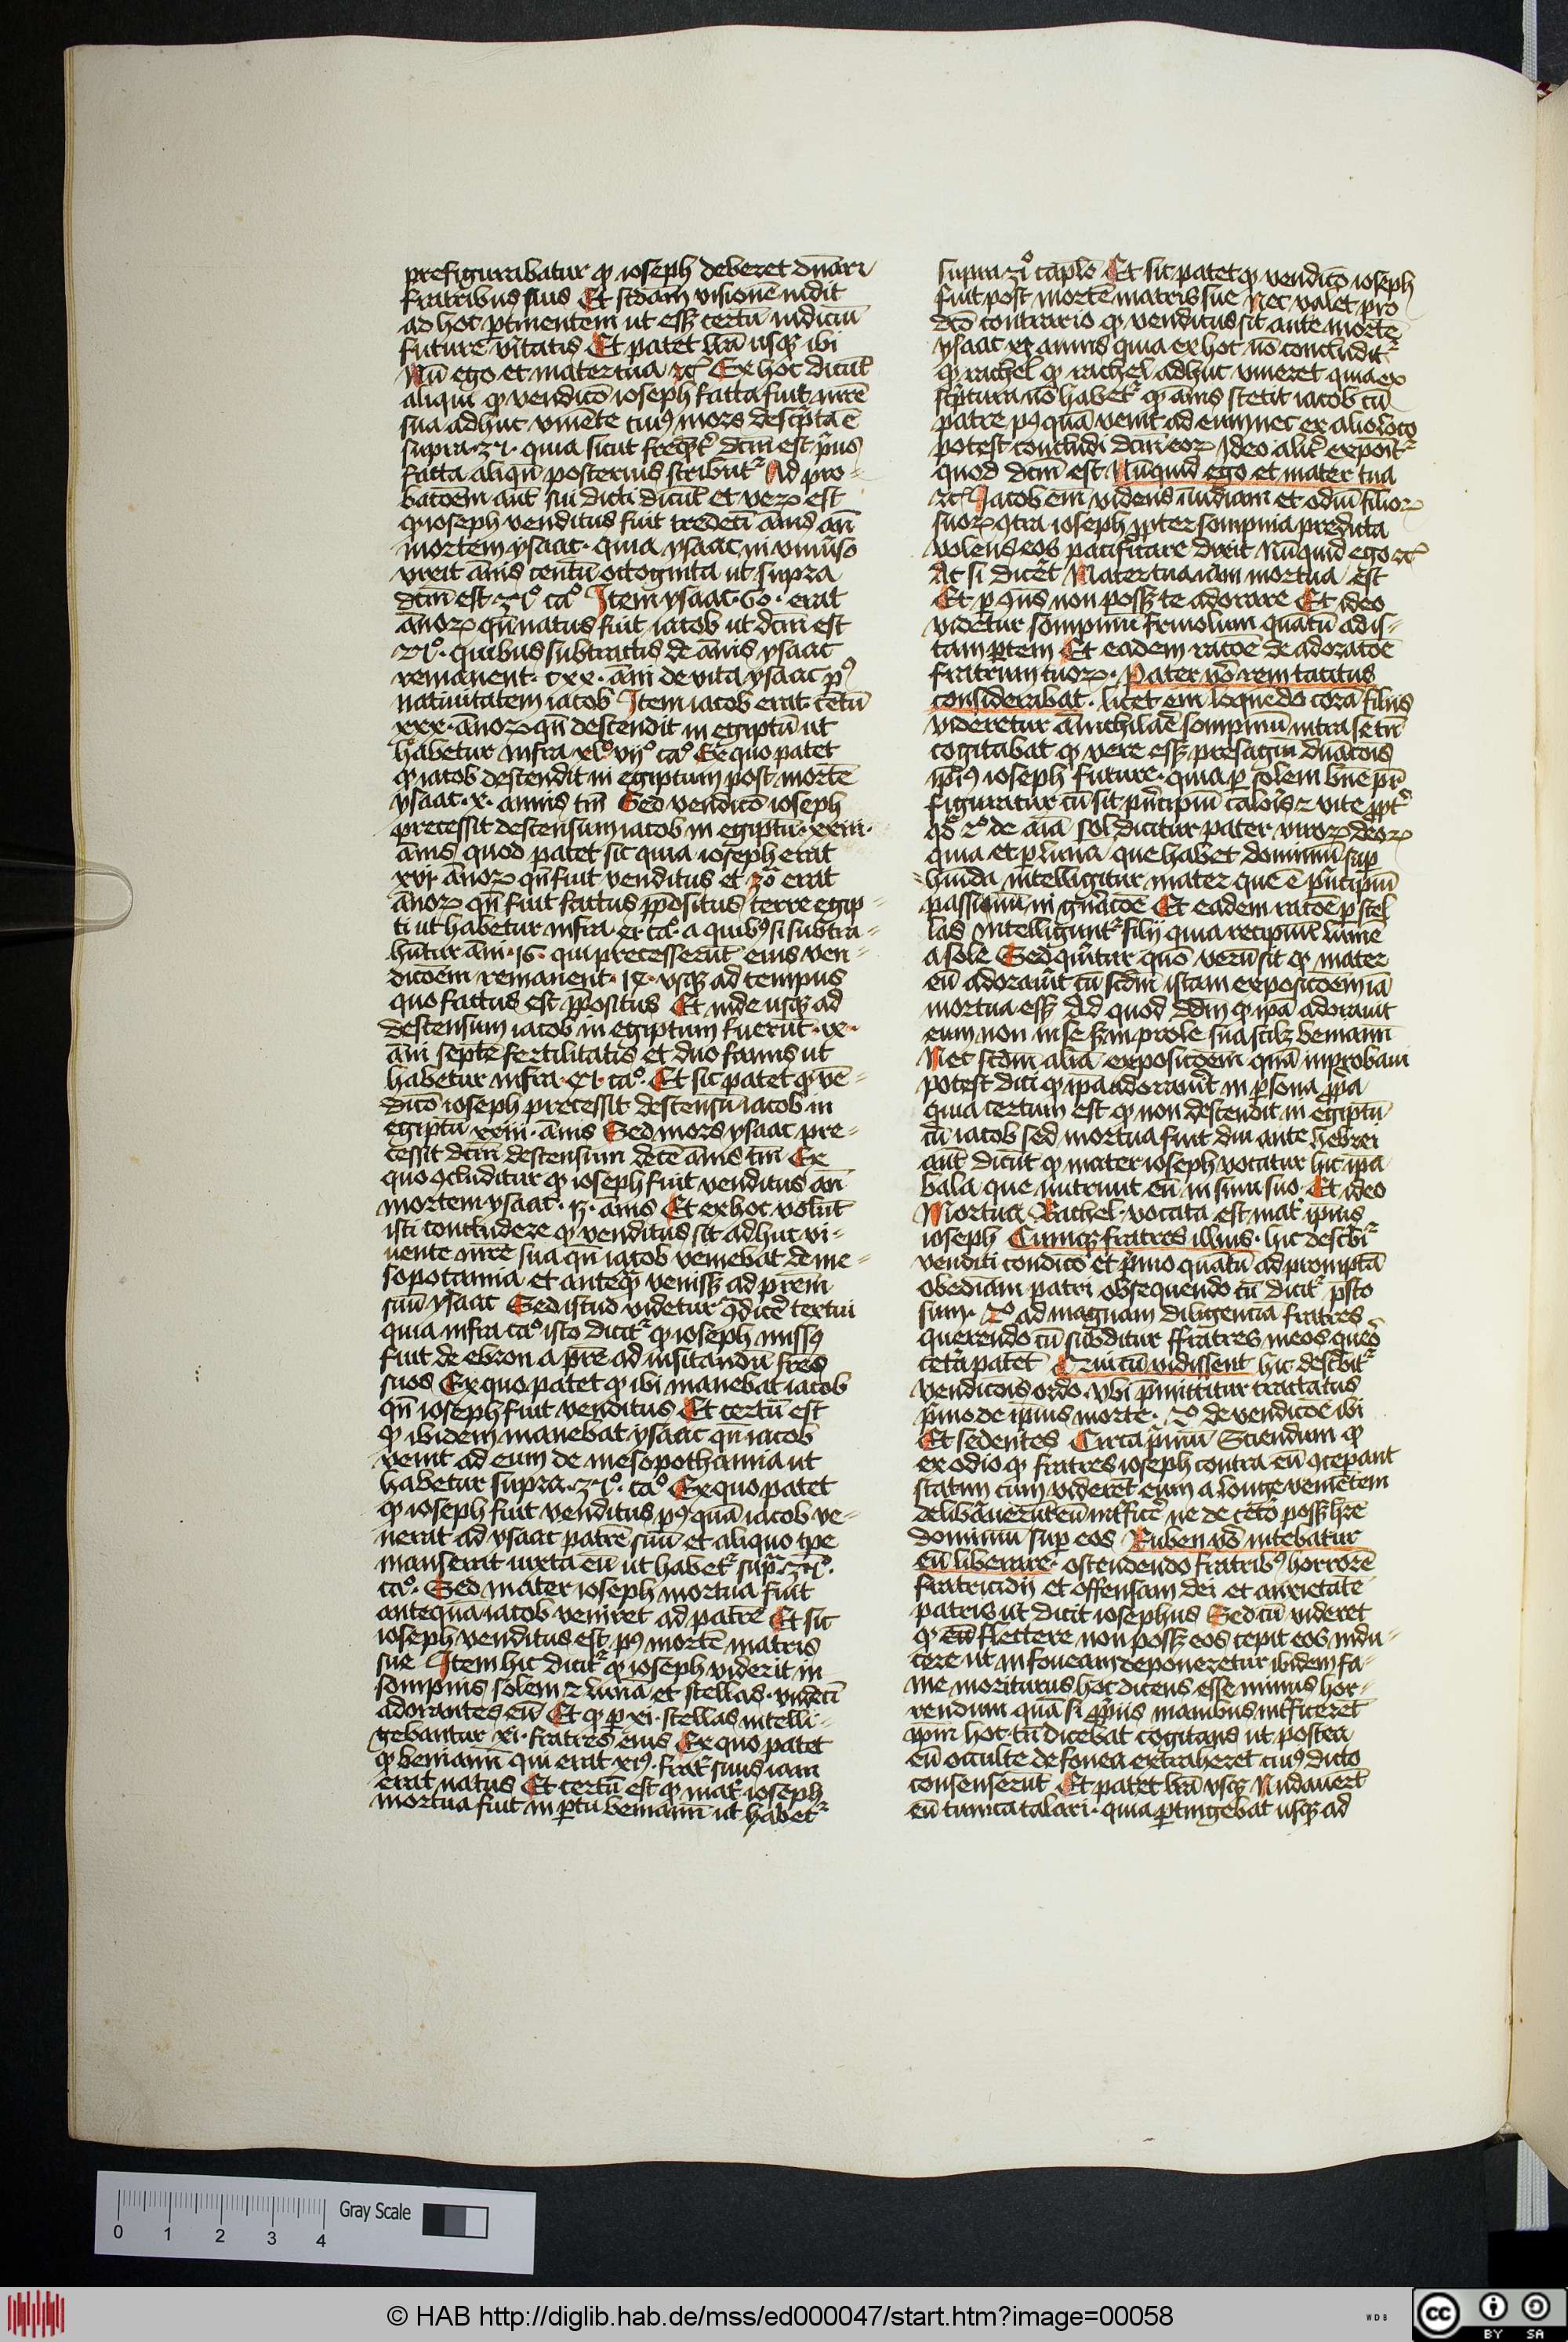 prefigurabatur ꝙ ioseph deberet dn̄ari
fratribus suis Et scd̄am visionē uidit
ad hoc ꝑtinentem ut esꝫ certū iudiciū
future v̄itatis Et patet lr̄a usqꝫ ibi
Nū ego et mater tua ⁊cͭ Ex hoc dicūt
aliqui ꝙ vendicō ioseph facta fuit mr̄e
sua adhuc viuēte cuiꝰ mors descͥpta ē
supra · 35 · quia sicut freqn̄t͛ dc̄m est pͥus
facta aliqn̄ posterius scribūtᷣ Ad pro⸗
bacōem aūt sui dicti dicūt et verꝝ est
qͦ ioseph venditus fuit tredeci ān̄is an̄
mortem ysaac · quia ysaac in vniu͛so
vixit ān̄is centū octoginta ut supra
dc̄m est · 35ͦ · caͦ Item ysaac · 60 · erat
ān̄oꝝ qn̄ natus fuit iacob ut dc̄m est
25ͦ · quibus subtractis de ān̄is ysaac
remanent · cxx · ān̄i de vita ysaac pꝰ
natiuitatem iacob Item iacob erat · cētū
xxx · ān̄oꝝ qn̄ descendit in egiptū ut
habetur infra xlͦvijͦ caͦ Ex quo patet
ꝙ iacob descendit in egiptum post mortē
ysaac · x · annis tm̄ Sed vendicō ioseph
precessit descensum iacob in egiptū · xxiii ·
ān̄is quod patet sic quia ioseph erat
xvi ān̄oꝝ qn̄ fuit venditus et 30 erat
ān̄oꝝ qn̄ fuit factus ꝓpositus terre egip⸗
ti ut habetur infra · 41 caͦ · a quibꝰ si subtra⸗
hūtur ān̄i · 16 · qui precesserūt eius ven⸗
dicōem remanent · 14 · vsqꝫ ad tempus
quo factus est ꝓpositus Et inde usqꝫ ad
descensum iacob in egiptum fuerūt · ix ·
ān̄i septē fertilitatis et duo famis ut
habetur infra · 45 · caͦ · Et sic patet ꝙ vē⸗
dicō ioseph precessit descensū iacob in
egiptū xxiii · ān̄is Sed mors ysaac pre⸗
cessit dc̄m descensum decē ān̄is tm̄ Ex
quo ꝯcluditur ꝙ ioseph fuit venditus an̄
mortem ysaac · 13 · ān̄is Et ex hoc volūt
isti concludere ꝙ venditus sit adhuc vi⸗
uente mr̄e sua qn̄ iacob veniebat de me⸗
sopotamia et anteqͣ venisꝫ ad prem̄
suū ysaac Sed istud videtur ꝯͣdice͛ textui
quia infra caͦ isto dicitᷣ ꝙ ioseph missꝰ
fuit de ebron a pr̄e ad uisitandū fr̄es
suos Ex quo patet ꝙ ibi manebat iacob
qn̄ ioseph fuit venditus Et certū est
ꝙ ibidem manebat ysaac qn̄ iacob
venit ad eum de mesopothamia ut
habetur supra · 35ͦ · caͦ Ex quo patet
ꝙ ioseph fuit venditus pꝰquā iacob ve⸗
nerat ad ysaac patrē suū et aliquo tp̄e
manserat iuxta eū ut habetᷣ supͣ · 35ͦ ·
caͦ · Sed mater ioseph mortua fuit
antequā iacob veniret ad patrē Et sic
ioseph venditus est pꝰ mortē matris
sue Item hic dicitᷣ ꝙ ioseph viderit in
sompnis solem ⁊ lunā et stellas · vndeci
adorantes eū Et ꝙ ꝑ xi · stellas intelli⸗
gebantur xi · fratres eius Ex quo patet
ꝙ beniamī qui erat · xiꝰ · frat͛ suus iam
erat natus Et certū est ꝙ mat͛ ioseph
mortua fuit in ꝑtu beniamī ut habetᷣ
supra 35ͦ caplō Et sic patet ꝙ vendicō ioseph
fuit post mortē matris sue Nec valet pro
dc̄o contrario ꝙ venditus sit ante mortē
ysaac xii annis quia ex hoc nō concluditᷣ
ꝙ rachel ꝙ rachel adhuc viueret quia ex
scͥptura nō habetᷣ ꝙ ān̄is stetit iacob cū
patre pꝰquā venit ad eum nec ex alio loco
potest concludi dc̄m eoꝝ Ideo alit͛ exponitᷣ
quod dc̄m est · Nūquid ego et mater tua
⁊cͭ Iacob em̄ videns īuidiam et odiū filioꝝ
suoꝝ ꝯtra ioseph ꝓpter sompnia predicta
volens eos pacificare dixit Nūquid ego ⁊cͭ
Ac si dic͛et Mater tua iam mortua est
Et ꝑ ꝯn̄s non posꝫ te adorare Et ideo
videtur sompniū friuolum quātū ad is⸗
tam ꝑtem Et eadem racōe de adoracōe
fratrum tuoꝝ · Pater vͦ rem tacitus
considerabat · licet em̄ loquēdo corā filijs
videretur ān̄ichilare sompniū intra se tn̄
cogitabat ꝙ vere esꝫ presagiū dn̄acōis
ip̄iꝰ ioseph future · quia ꝑ solem bn̄e pr̄
figuratur cū sit pͥncipiū caloris ⁊ vite ꝓptͤ
qd̓ 2ͦ de aīa sol dicitur pater viroꝝ deoꝝ
quia et ꝑ lunā que habet dominiū suꝑ
humida intelligitur mater que ē pͥncipiū
passiuū in gn̄acōe Et eadem racōe ꝑ stel
las intelliguntᷣ filij quia recipiūt lumē
a sole Sed querͥtur quō verū sit ꝙ mater
eū adorau͛it cū scdm̄ istam exposicōem iā
mortua esꝫ Ad quod dd̄m ꝙ ip̄a adorauit
eum non in se sꝫ in prole sua scilꝫ beniamī
Nec scdm̄ aliā exposicōem quā inprobaui
potest dici ꝙ ip̄a adorau͛it in ꝑsona ꝓpͥa
quia certum est ꝙ non descendit in egiptū
cū iacob sed mortua fuit diu ante hebrei
aūt dicūt ꝙ mater ioseph vocatur hic ip̄a
bala que nutriuit eū in sinu suo · Et ideo
Mortua Rachel · vocata est mat͛ ip̄ius
ioseph Cumqꝫ fratres illius · hic describiᷣ
venditi condicō et pͥmo quātū ad promptā
obediam̄ patri obsequendo cū dicitᷣ p̄sto
sum · 2ͦ ad magnam diligenciā fratres
querendo cū subditur ffratres meos quero
cet͛a patēt Qui cū vidissent hic describitᷣ
vendicōis ordo · vbi p̄mittitur tractatus
pͥmo de ip̄ius morte · 2ͦ de vendicōe ibi
Et sedentes Circa pͥmū Sciendum ꝙ
ex odio ꝙ fratres ioseph contra eū ꝯcepant
statim cum viderēt eum a longe veniētem
delib͛auerūt eū int̓fice͛ ne de cet͛o posꝫ hr̄e
dominiū suꝑ eos Ruben vͦ nitebatur
eū liberare · ostendendo fratribꝰ horrorē
fratricidij et offensam dei et anxietatē
patris ut dicit iosephus Sed cū videret
ꝙ eū flectere non posꝫ eos cepit eos indu⸗
cere ut in foueam deponeretur ibidem fa⸗
me moriturus hoc dicens esse minus hor⸗
rendum quā si ꝓpͥijs manibus int̓ficeret
ip̄m hoc · tn̄ dicebat cogitans ut postea
eū occulte de fouea extraheret cuiꝰ dicto
consenserūt Et patet lr̄a vsqꝫ Nudauerūt
eū tunica talari · quia ꝑtingebat usqꝫ ad
0 1 2 3 4
Gray Scale
© HAB http://diglib.hab.de/mss/ed000047/start.htm?image=00058
WDB
cc BY SA